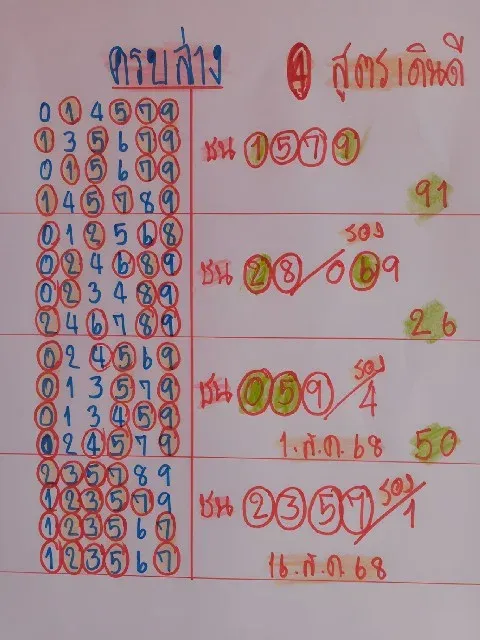 ครบล่าง
1 สูตรเดินดี
0 1 4 5 7 9
1 3 5 6 7 9
0 1 5 6 7 9
1 4 5 7 8 9
ชน 1 5 7 9
91
0 1 2 5 6 8
0 2 4 6 8 9
0 2 3 4 8 9
2 4 6 7 8 9
ชน 2 8 / 0 6 9 รอง
26
0 2 4 5 6 9
0 1 3 5 7 9
0 1 3 4 5 9
0 2 4 5 7 9
ชน 0 5 9 / 4 รอง
1.ส.ค.68
50
2 3 5 7 8 9
1 2 3 5 7 9
1 2 3 5 6 7
1 2 3 5 6 7
ชน 2 3 5 7 / 1 รอง
16.ส.ค.68